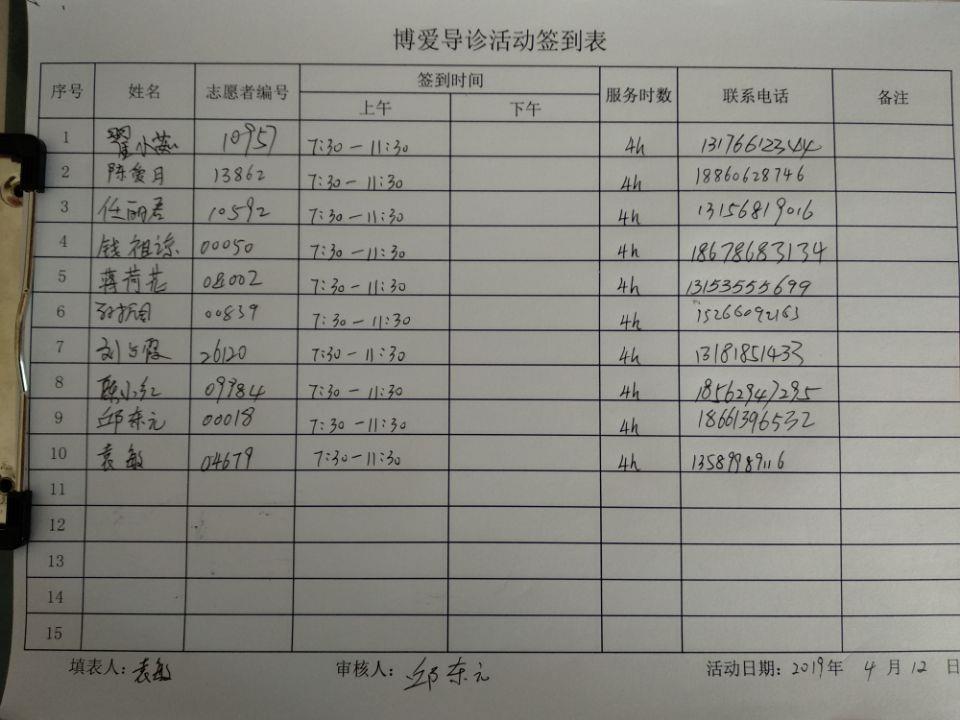 博爱导诊活动签到表
序号 姓名 志愿者编号 签到时间 服务时数 联系电话 备注
上午 下午
1 翟小燕 10957 7:30-11:30 4h 13176612344
2 陈爱月 13862 7:30-11:30 4h 18860628746
3 任丽君 10592 7:30-11:30 4h 13156819016
4 钱祖谅 00050 7:30-11:30 4h 18678683134
5 蒋荷花 08002 7:30-11:30 4h 13153555699
6 00839 7:30-11:30 4h 15266092163
7 刘 霞 26120 7:30-11:30 4h 13181851433
8 小红 09984 7:30-11:30 4h 18562947295
9 邱东元 00018 7:30-11:30 4h 18661396532
10 袁敏 04679 7:30-11:30 4h 13589989116
11
12
13
14
15
填表人:袁敏 审核人:邱东元 活动日期:2019年 4月12日